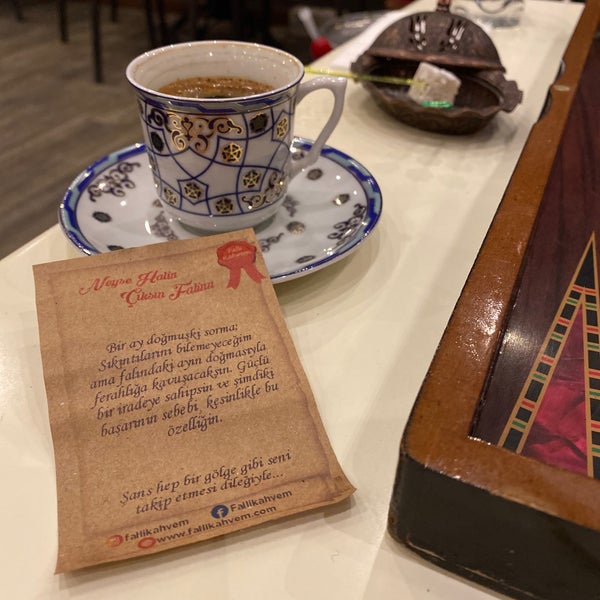 Neyse Halin
Çıksın Falin
Fallı
Kahvem
Bir ay doğmuşki sorma;
Sıkıntılarını bilemeyeceğim
ama falındaki ayın doğmasıyla
ferahlığa kavuşacaksın. Güçlü
bir iradeye sahipsin ve şimdiki
başarının sebebi, kesinlikle bu
özelliğin.
Şans hep bir gölge gibi seni
takip etmesi dileğiyle...
fallikahvem Fallikahvem
www.fallikahvem.com